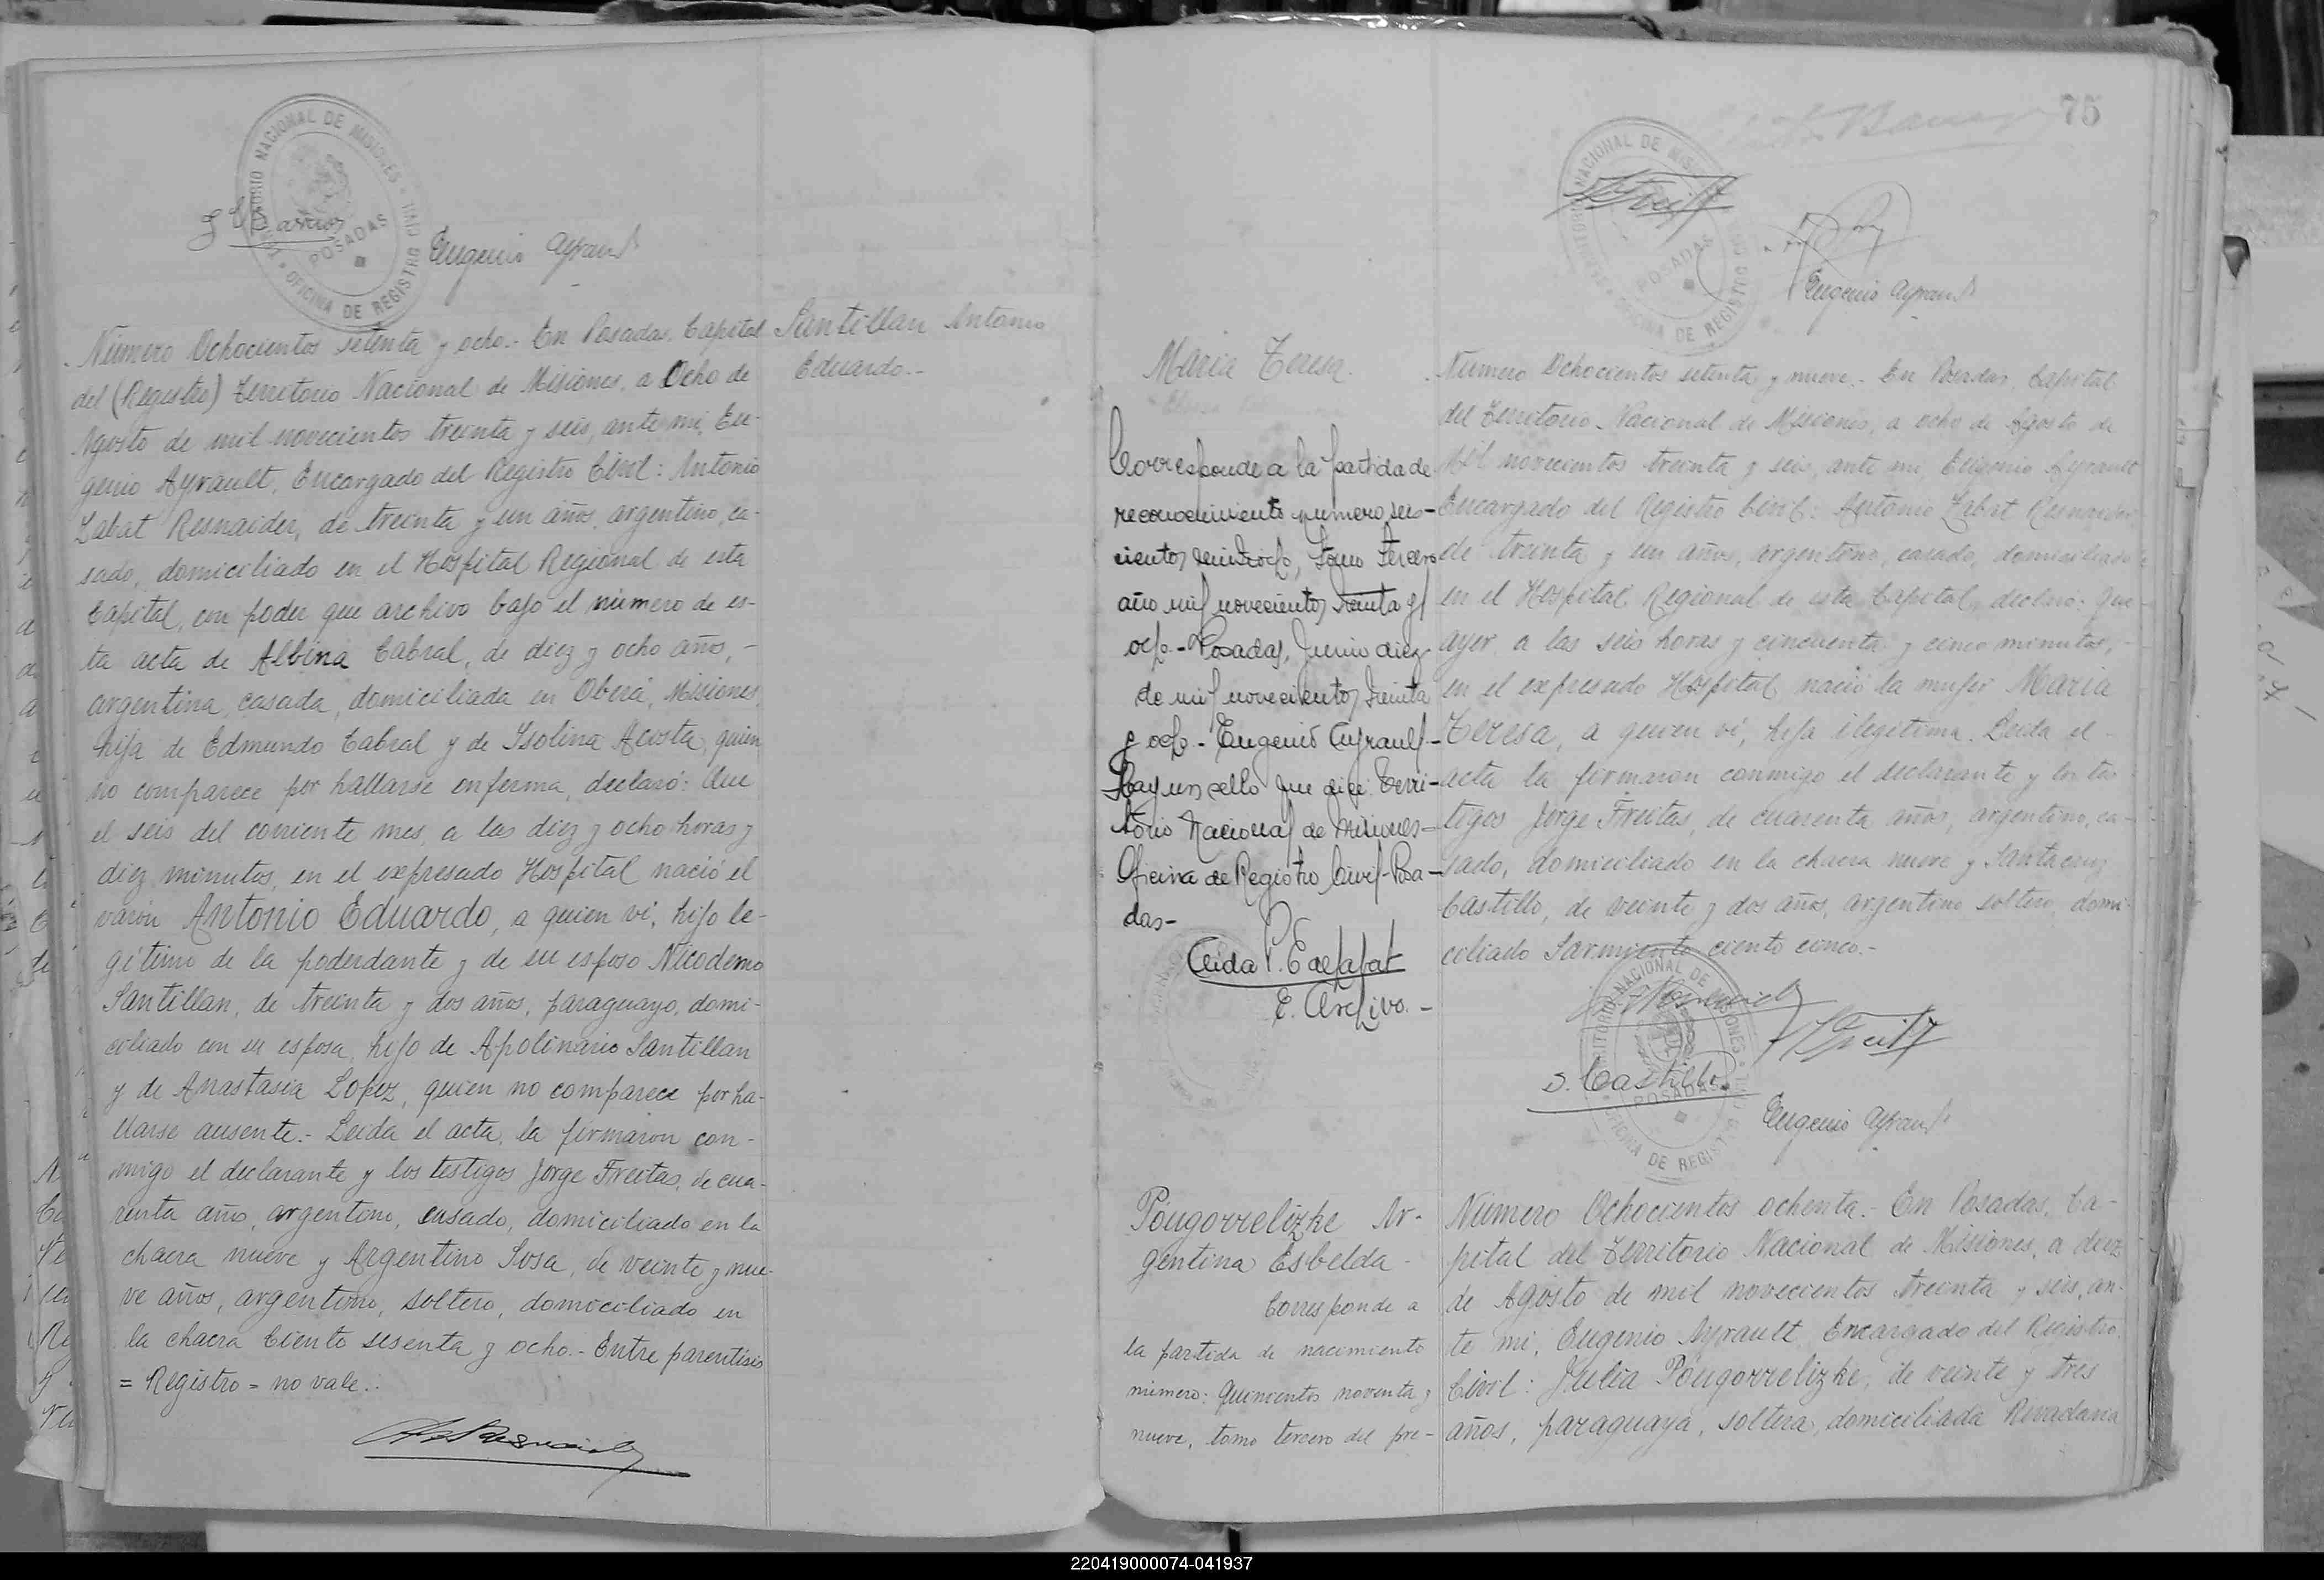 TERRITORIO NACIONAL DE MISIONES
OFICINA DE REGISTRO CIVIL
POSADAS
Eugenio Ayrault
Número Ochocientos setenta y ocho.- En Posadas, Capital
del (Registro) Territorio Nacional de Misiones, a Ocho de
Agosto de mil novecientos treinta y seis, ante mi, Eu-
genio Ayrault, Encargado del Registro Civil: Antonio
Labat Resnaider, de treinta y un años, argentino, ca-
sado, domiciliado en el Hospital Regional de esta
Capital, con poder que archivo bajo el número de es-
ta acta de Albina Cabral, de diez y ocho años,-
argentina, casada, domiciliada en Oberá, Misiones,
hija de Edmundo Cabral y de Isolina Acosta, quien
no comparece por hallarse enferma, declaró: Que
el seis del corriente mes, a las diez y ocho horas y
diez minutos, en el expresado Hospital nació el
varón Antonio Eduardo, a quien vi, hijo le-
gítimo de la poderdante y de su esposo Nicodemo
Santillan, de treinta y dos años, paraguayo, domi-
ciliado con su esposa, hijo de Apolinario Santillan
y de Anastasia Lopez, quien no comparece por ha-
llarse ausente.- Leida el acta, la firmaron con-
migo el declarante y los testigos Jorge Freitas, de cua-
renta año, argentino, casado, domiciliado en la
chacra nueve y Argentino Sosa, de veinte y nue-
ve años, argentino, soltero, domiciliado en
la chacra Ciento sesenta y ocho.- Entre parentisis
= Registro = no vale.-
Santillan Antonio
Eduardo.-
75
TERRITORIO NACIONAL DE MISIONES
OFICINA DE REGISTRO CIVIL
POSADAS
Eugenio Ayrault
Maria Teresa.
Corresponde a la partida de
reconocimiento numero seis-
cientos veintiocho, Tomo Tercero
año mil novecientos treinta y
ocho.- Posadas, Junio diez
de mil novecientos treinta
y ocho - Eugenio Ayrault-
Hay un sello que dice: Terri-
torio Nacional de Misiones-
Oficina de Registro Civil-Posa-
das-
E. Archivo.-
Número Ochocientos setenta y nueve.- En Posadas, Capital
del Territorio Nacional de Misiones, a ocho de Agosto de
Mil novecientos treinta y seis, ante mi, Eugenio Ayrault
Encargado del Registro Civil: Antonio Labat Resnaider
de treinta y un años, argentino, casado, domiciliado
en el Hospital Regional de esta Capital, declaró: Que
ayer a las seis horas y cincuenta y cinco minutos,-
en el expresado Hospital nació la mujer Maria
Teresa, a quien vi, hija ilegitima. Leida el
acta la firmaron conmigo el declarante y los tes-
tigos Jorge Freitas, de cuarenta años, argentino, ca-
sado, domiciliado en la chacra nueve y Santa cruz
Castillo, de veinte y dos años, argentino soltero, domi-
ciliado Sarmiento ciento cinco.-
TERRITORIO NACIONAL DE MISIONES
OFICINA DE REGISTRO CIVIL
POSADAS
S. Castillo
Eugenio Ayrault
Póugorrelizke Ar-
gentina Esbelda-
Corresponde a
la partida de nacimiento
número: Quinientos noventa y
nueve, tomo tercero del pre-
Número Ochocientos ochenta.- En Posadas, Ca-
pital del Territorio Nacional de Misiones, a diez
de Agosto de mil novecientos treinta y seis, an-
te mi, Eugenio Ayrault Encargado del Registro
Civil: Julia Póugorrelizke, de veinte y tres
años, paraguaya, soltera, domiciliada Rivadavia
220419000074-041937